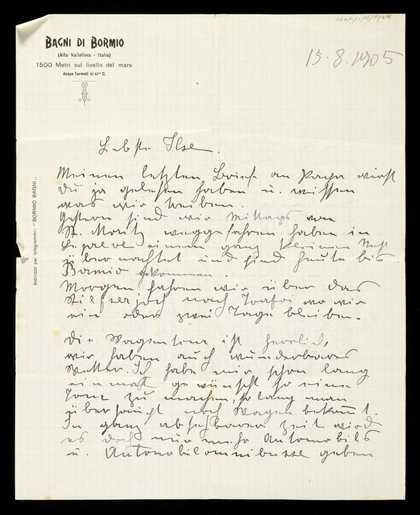 BAGNI DI BORMIO
(Alta Valtellina - Italia)
1500 Metri sul livello del mare
Acque Termali
13.8.1905
Indirizzo per telegrammi: BORMIO BAGNI
Liebste Ilse.
Meinen letzten Brief an Papa wirst
du ja gelesen haben u. wissen
was wir treiben.
Gestern sind wir Mittags von
St. Moritz weggefahren haben in
einem ganz kleinen Nest
übernachtet und sind heute bis
Bormio gekommen.
Morgen fahren wir über das
Stilfserjoch nach Trafoi wo wir
ein oder zwei Tage bleiben.
Die Wagentour ist herrlich,
wir haben auch wunderbares
Wetter. Ich habe mir schon lang
einmal gewünscht so eine
Tour zu machen, so lang man
überhaupt noch Wagen bekommt.
In ganz absehbarer Zeit wird
es doch nur mehr Automobils
u. Automobilomnibusse geben